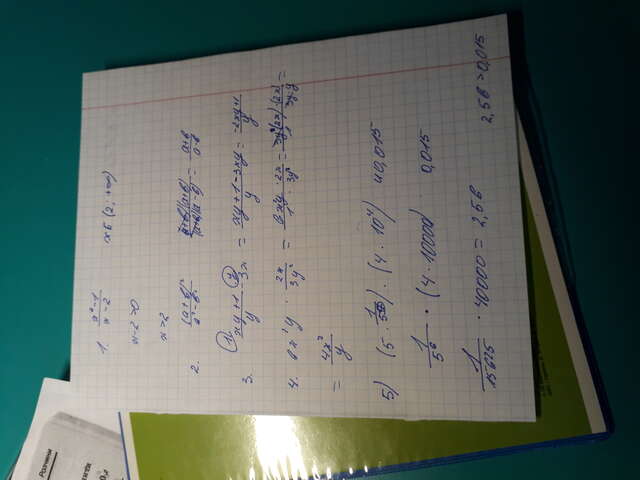 Розчини
1. (x²-1)/(x-2) x∈(2; +∞)
x-2>0
x>2
2. (a+b)²/(a²-b²) (a+b)(a+b)/(a+b)(a-b) = (a+b)/(a-b)
3. (xy+1)/y - 3x = (xy+1-3xy)/y = (-2xy+1)/y
4. 6x²y · 2x/3y² = (6x²y · 2x)/(1 · 3y²) = =
= 4x³/y
5) · (4 · 10⁴) и 0,015
1/5⁶ · (4 · 10000) 0,015
1/15625 · 40000 = 2,56 2,56 > 0,015